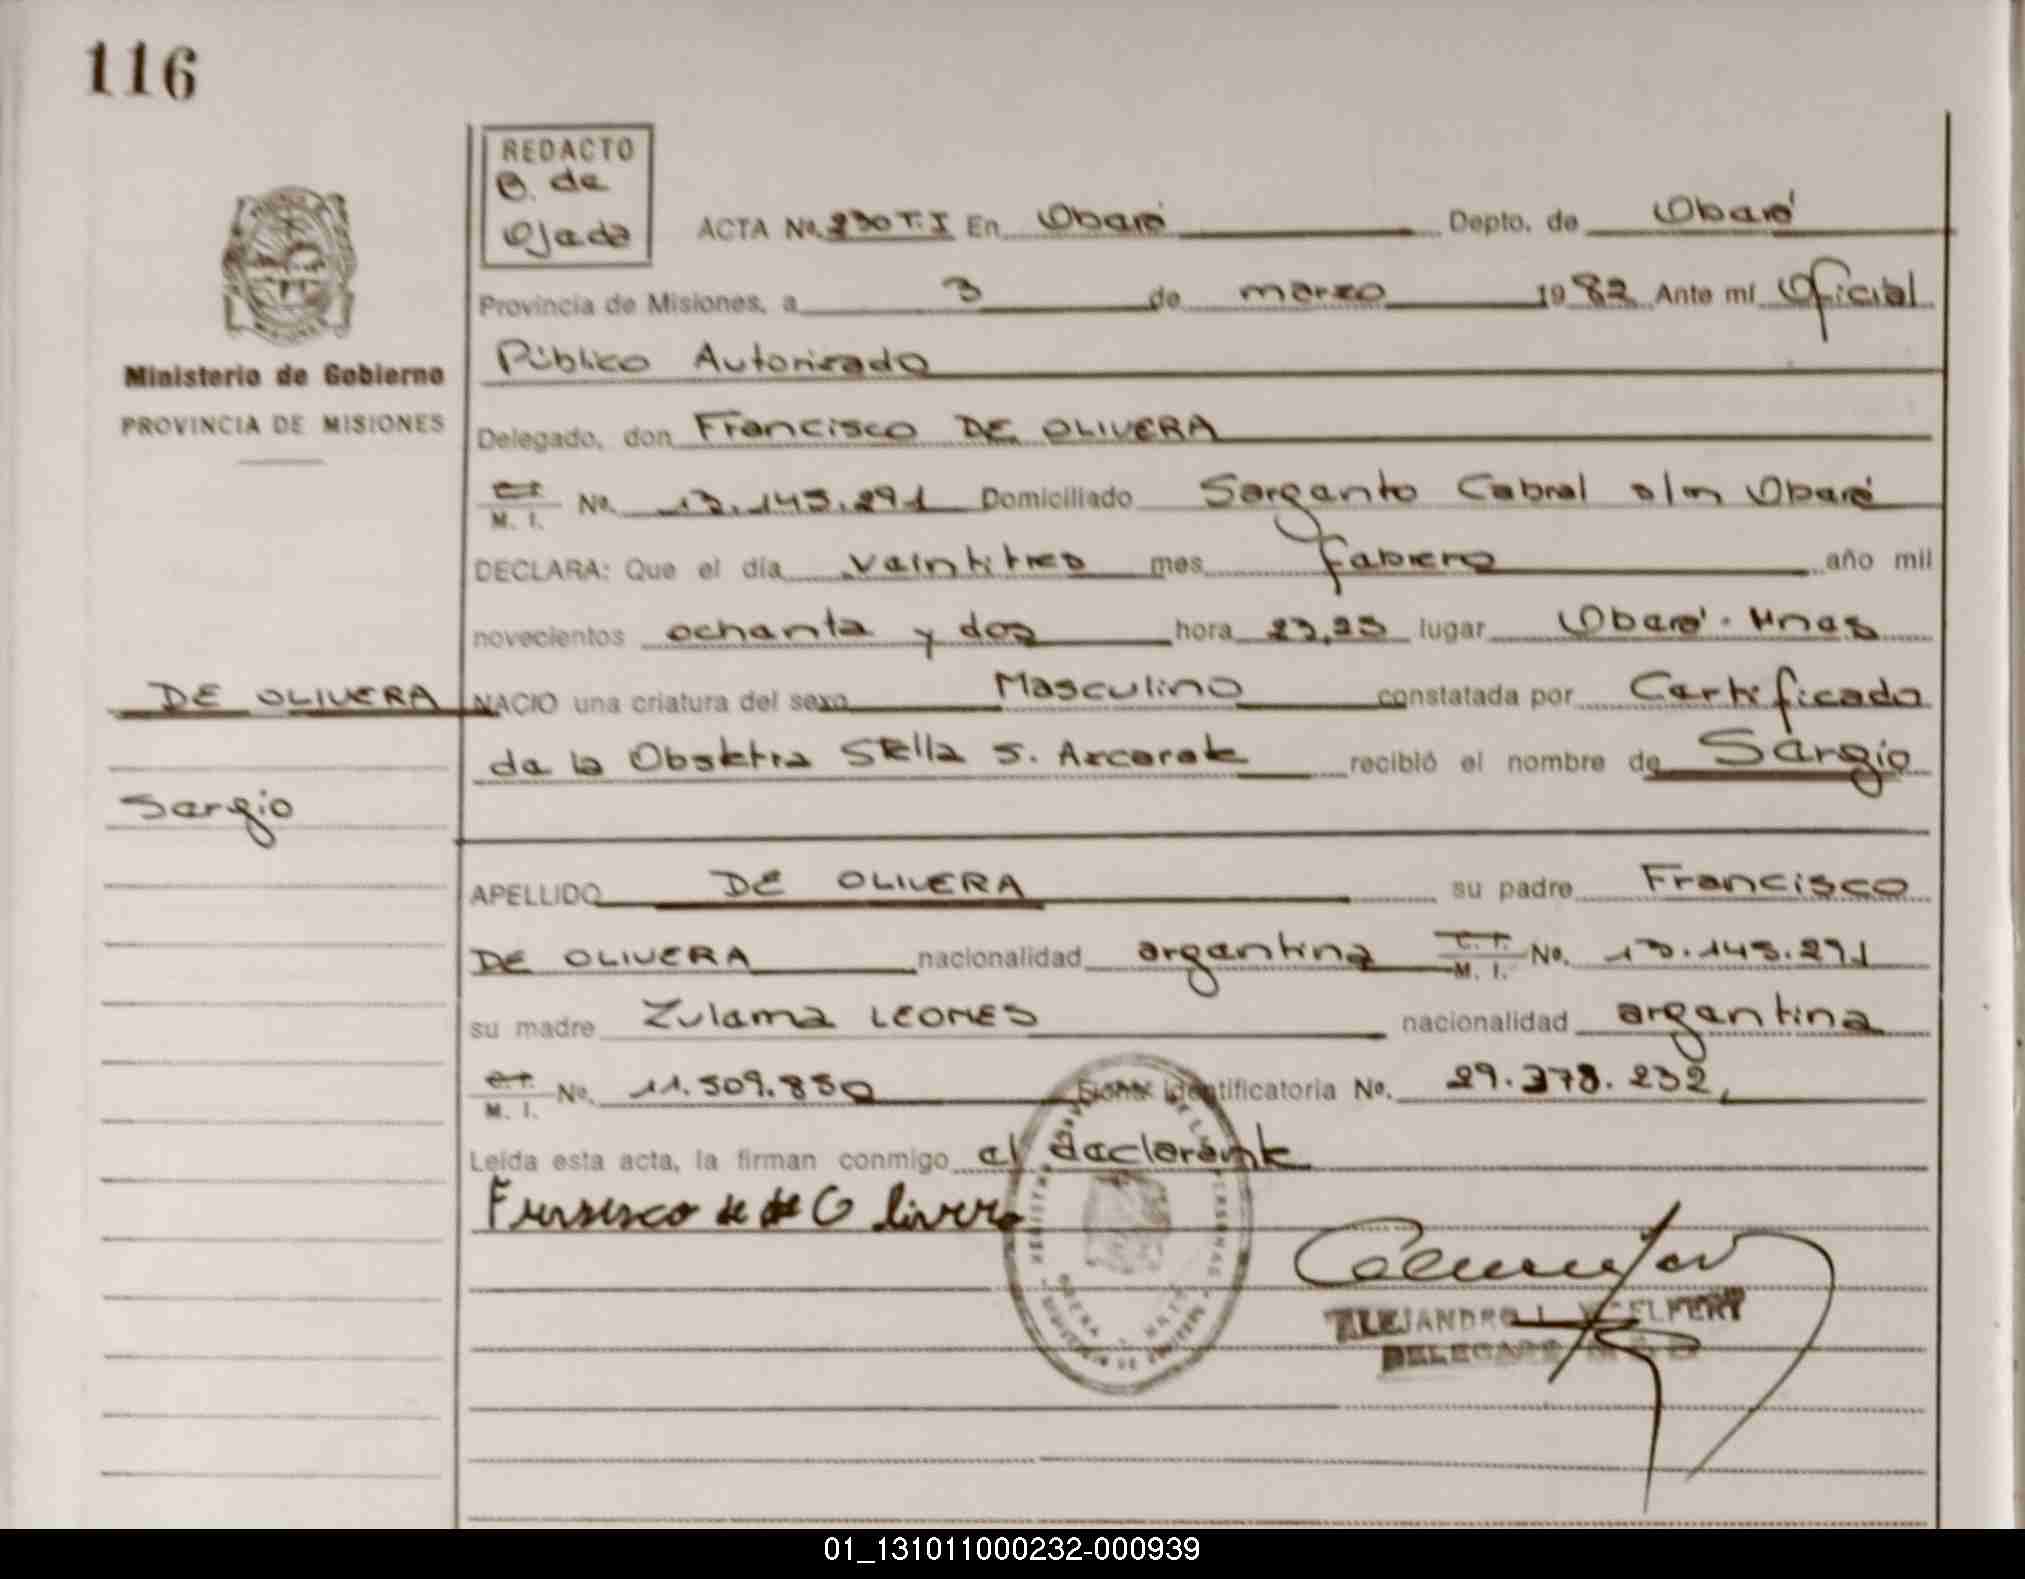 116
REDACTO
B. de
Ojeda
ACTA No. 230 T. I En Oberá Depto. de Oberá
Provincia de Misiones, a 3 de marzo 19 82 Ante mí Oficial
Público Autorizado
Ministerio de Gobierno
PROVINCIA DE MISIONES
Delegado, don Francisco DE OLIVERA
C. I.
M. I. No. 13.143.291 Domiciliado Sargento Cabral s/n Oberá
DECLARA: Que el día veintitres mes febrero año mil
novecientos ochenta y dos hora 23,25 lugar Oberá - Mnes
DE OLIVERA
NACIO una criatura del sexo Masculino constatada por Certificado
de la Obstetra Stella S. Azcarate recibió el nombre de Sergio
Sergio
APELLIDO DE OLIVERA su padre Francisco
DE OLIVERA nacionalidad argentina C. I.
M. I. No. 13.143.291
su madre Zulema LEOMES nacionalidad argentina
C. I.
M. I. No. 11.509.850 Ficha identificatoria No. 29.378.232,
Leída esta acta, la firman conmigo el declarante
Fransisco de de Olivera
ALEJANDRO L.
DELEGADO
01_131011000232-000939